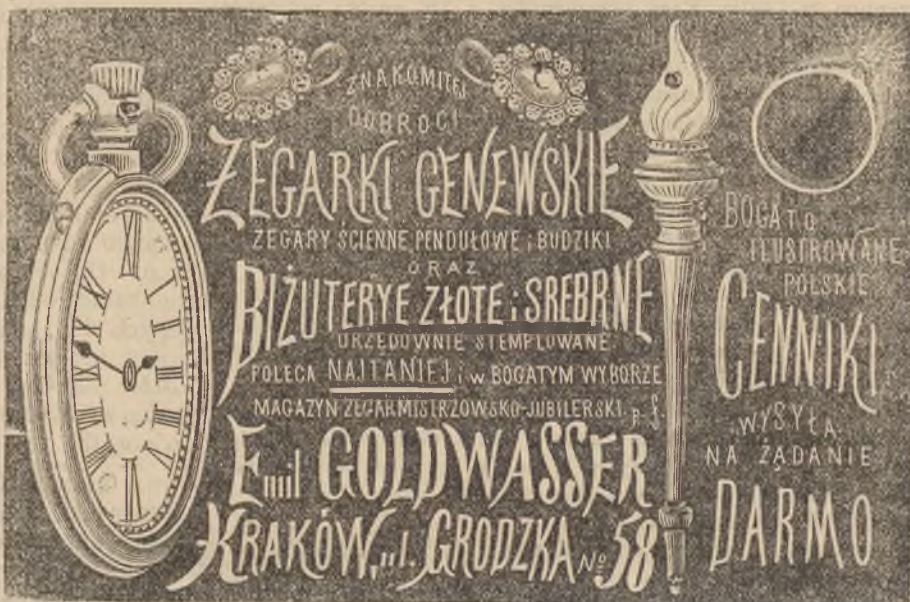 ZNAKOMITEJ
DOBROCI
ZEGARKI GENEWSKIE
ZEGARY ŚCIENNE PENDUŁOWE i BUDZIKI
ORAZ
BIŻUTERYE ZŁOTE i SREBRNE
URZĘDOWNIE STEMPLOWANE
POLECA NAJTANIEJ i W BOGATYM WYBORZE
MAGAZYN ZEGARMISTRZOWSKO-JUBILERSKI p. f.
Emil GOLDWASSER
KRAKÓW, ul. GRODZKA No 58
BOGATO
ILUSTROWANE
POLSKIE
CENNIKI
WYSYŁA
NA ŻĄDANIE
DARMO